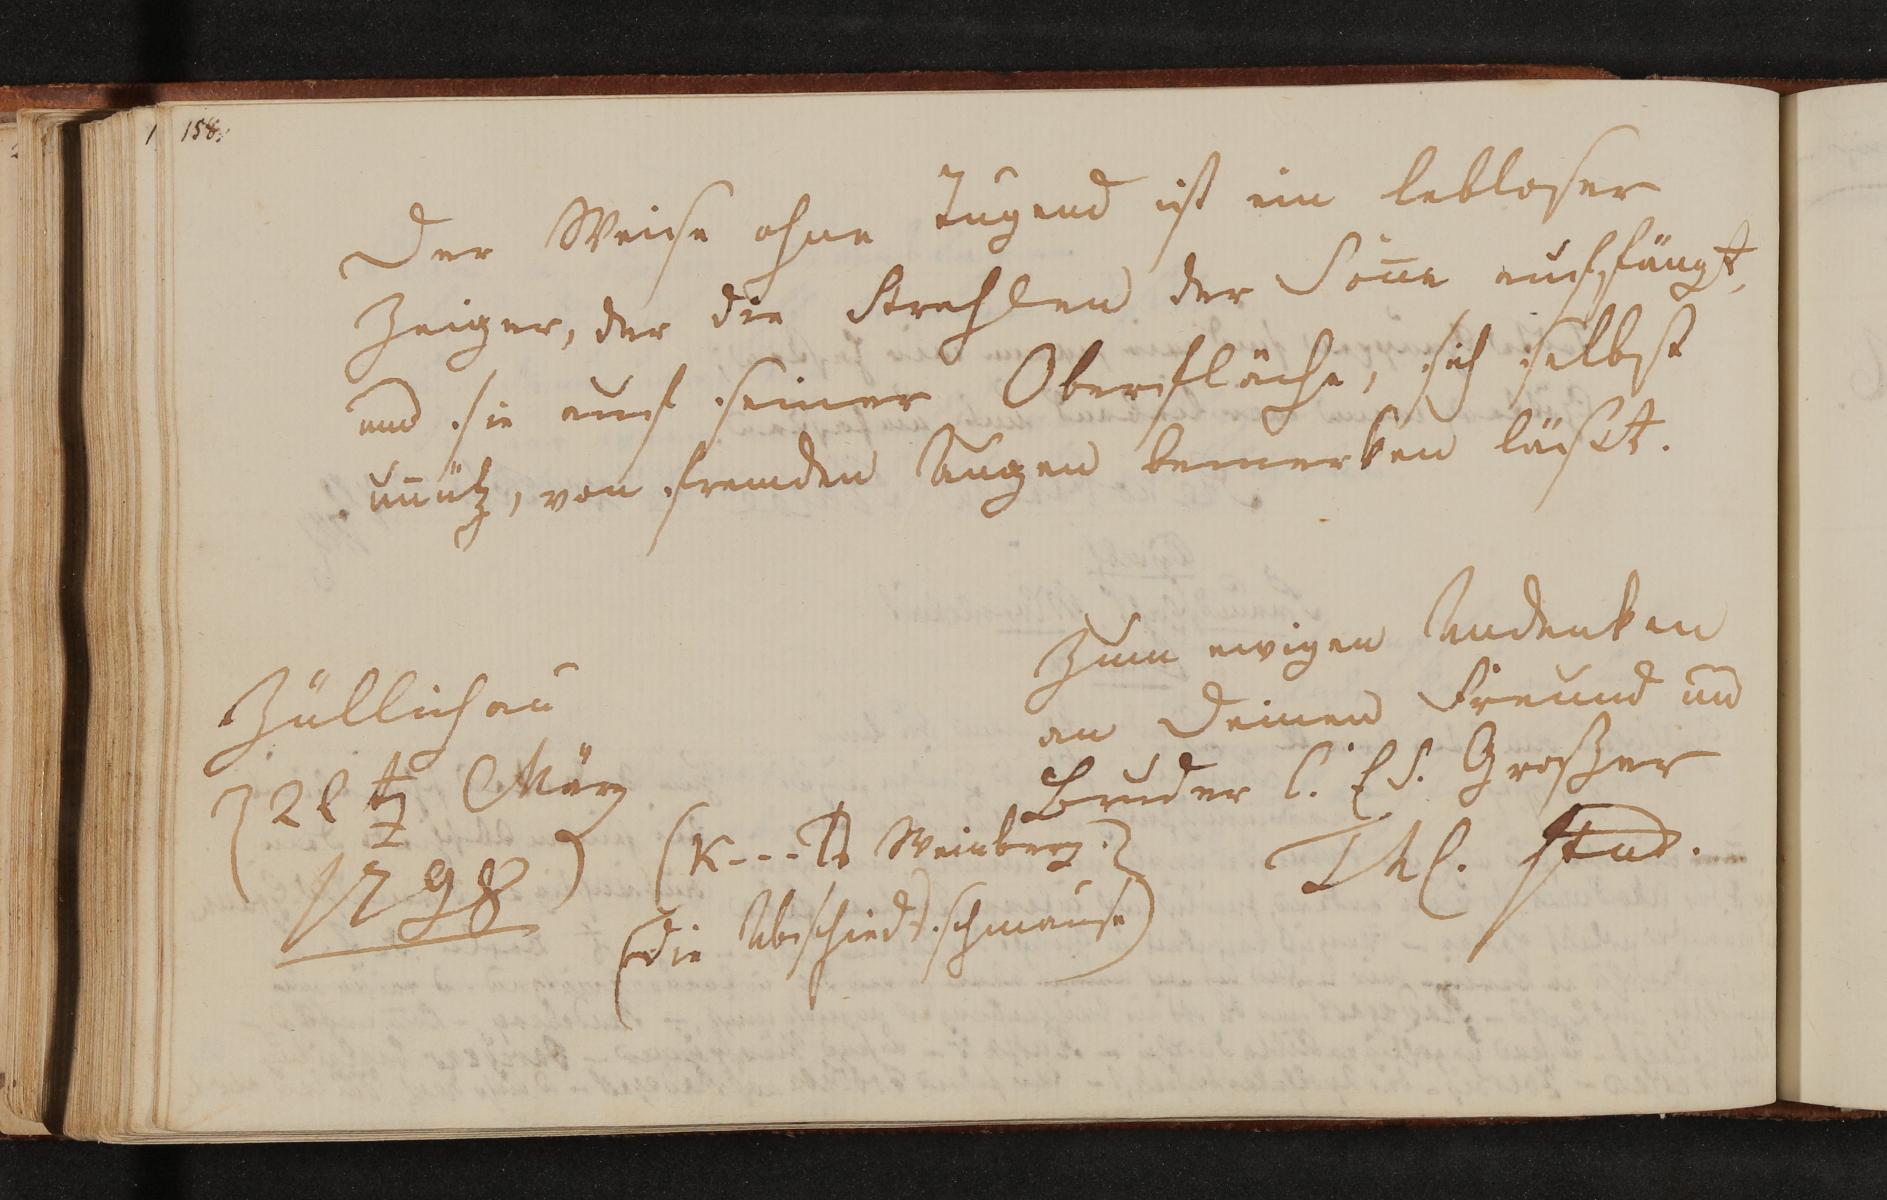 158.
Der Weise ohne Tugend ist ein lebloser
Zeiger, der die Strahlen der Son̄e auffängt,
und sie auf seiner Oberfläche, sich selbst
un̄ütz, von fremden Augen bemerken läßt.
Zum ewigen Andenken
an Deinen Freund un̄d
Bruder C. E. S. Großer
Th. C. stud.
Züllichau
März
1798
(K - - - Weinberg.)
(die Abschiedsschmause)